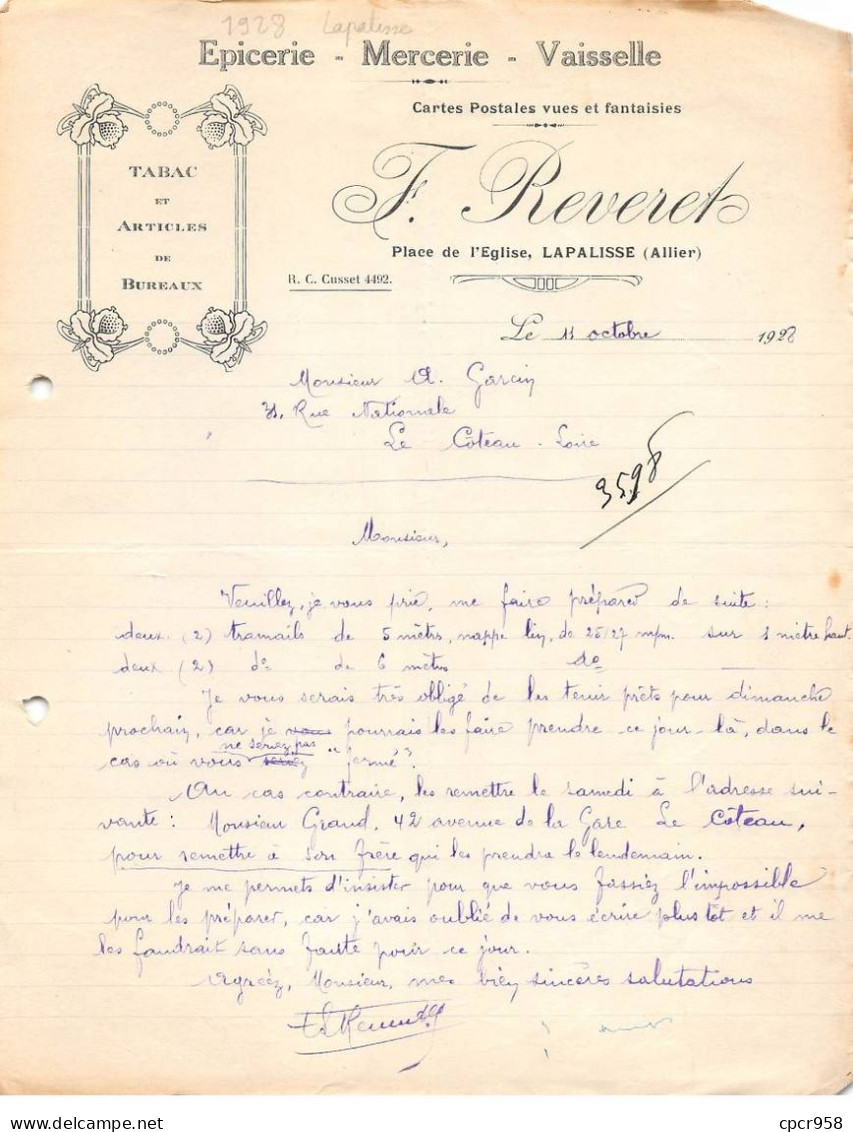 1928 Lapalisse
Epicerie - Mercerie - Vaisselle
Cartes Postales vues et fantaisies
TABAC
ET
ARTICLES
DE
BUREAUX
F. Reveret
Place de l'Eglise, LAPALISSE (Allier)
R. C. Cusset 4492.
Le 11 octobre 1928
Monsieur A. Garcin
31, Rue Nationale
Le Côteau - Loire
3598
Monsieur,
Veuillez, je vous prie, me faire préparer de suite :
deux (2) tramails de 5 mètrs, nappe lin, de 25/27 mpm. sur 1 mètre haut.
deux (2) do de 6 mètres do
Je vous serais très obligé de les tenir prêts pour dimanche
prochain, car je vous pourrais les faire prendre ce jour-là, dans le
ne seriez pas
cas où vous seriez "fermé".
Au cas contraire, les remettre le samedi à l'adresse sui-
vante : Monsieur Grand, 42 avenue de la Gare Le Côteau,
pour remettre à son frère qui les prendra le lendemain.
Je me permets d'insister pour que vous fassiez l'impossible
pour les préparer, car j'avais oublié de vous écrire plus tôt et il me
les faudrait sans faute pour ce jour.
Agréez, Monsieur, mes bien sincères salutations
cpcr958